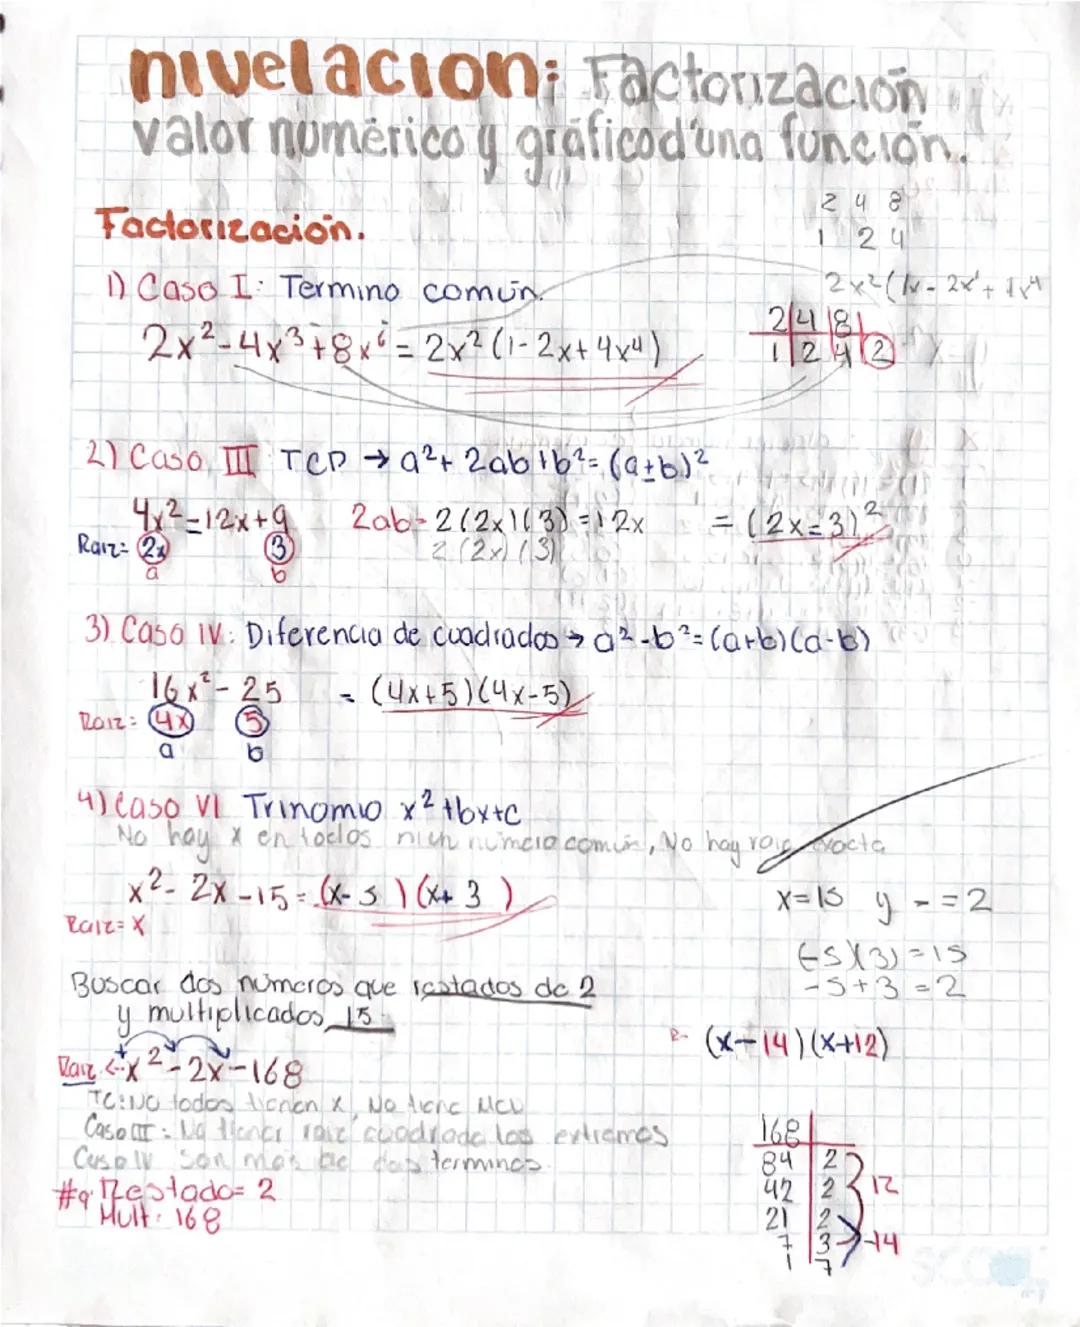 nivelacion: Factorización
valor numérico y gráfico d'una función.
Factorización.
2 4 8
1 2 4
1) Caso I: Termino común.
2x²(1x - 2x¹ + 4x⁴
2x² - 4x³ + 8x⁶ = 2x² (1 - 2x + 4x⁴)
2 | 4 | 8 |
1 | 2 | 4 | 2
2) Caso III TCP → a² + 2ab + b² = (a ± b)²
4x² - 12x + 9 2ab = 2(2x)(3) = 12x = (2x - 3)²
Raiz = 2x 3 2 (2x) (3)
a b
3) Caso IV: Diferencia de cuadrados → a² - b² = (a+b)(a-b)
16x² - 25 = (4x+5)(4x-5)
Raiz: 4x 5
a b
4) Caso VI Trinomio x² + bx + c
No hay x en todos número común, No hay raiz exacta
x² - 2x - 15 = (x - 5)(x + 3)
x = 15 y - = 2
Raiz = x
(-5)(3) = 15
-5 + 3 = 2
Buscar dos números que restados de 2
y multiplicados 15
R- (x - 14)(x + 12)
Raiz ← x² - 2x - 168
TC: No todos tienen x, No tiene MCD
Caso III: No tienen raiz cuadrada los extremos
Caso IV Son mas de dos terminos.
#q Restado = 2
Mult: 168
168
84 | 2
42 | 2 12
21 | 2
7 | 3 -14
1 | 7